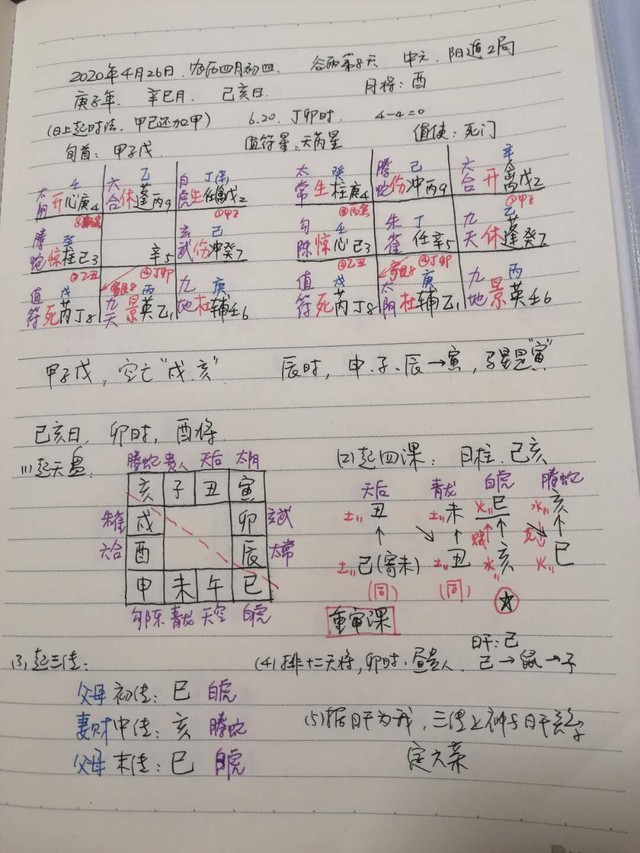 2020年4月26日. 农历四月初四. 谷雨第8天 中元. 阳遁2局
庚子年. 辛巳月. 己亥日. 月将: 酉
(日上起时法, 甲己还加甲) 6.20. 丁卯时. 4-4=0
旬首: 甲子戊. 值符星: 天芮星 值使: 死门
壬 乙 丁
太阴 开心庚4 六合 休蓬丙9 白虎 生任 戊2
癸 己
腾蛇 惊柱己3 辛5 玄武 伤冲癸7
戊 丙 庚
值符 死芮丁8 九天 景英乙1 九地 杜辅壬6
癸 己 辛
太常 生柱庚4 腾蛇 伤冲丙9 六合 开 戊2
壬 丁 乙
勾陈 惊心己3 朱雀 任辛5 九天 休蓬癸7
戊 庚 丙
值符 死芮丁8 太阴 杜辅乙1 九地 景英壬6
甲子戊, 空亡"戌.亥" 辰时, 申.子.辰→寅, 马星是"寅"
己亥日. 卯时, 酉将.
(1)起天盘
腾蛇 贵人 天后 太阴
亥 子 丑 寅
朱雀 戌 卯 玄武
六合 酉 辰 太常
甲 未 午 巳
勾陈 青龙 天空 白虎
(2)起四课: 日柱. 己亥
天后 青龙 白虎 腾蛇
土 丑 土 未 火 巳 水 亥
土 己(寄未) 土 丑 水 亥 火 巳
(同) (同)
重审课
(3)起三传:
父母 初传: 巳 白虎
妻财 中传: 亥 腾蛇
父母 末传: 巳 白虎
(4)排十二天将, 卯时. 昼贵人. 日干: 己
己→鼠→子
(5)据日干为我, 三传上神与日干
定六亲